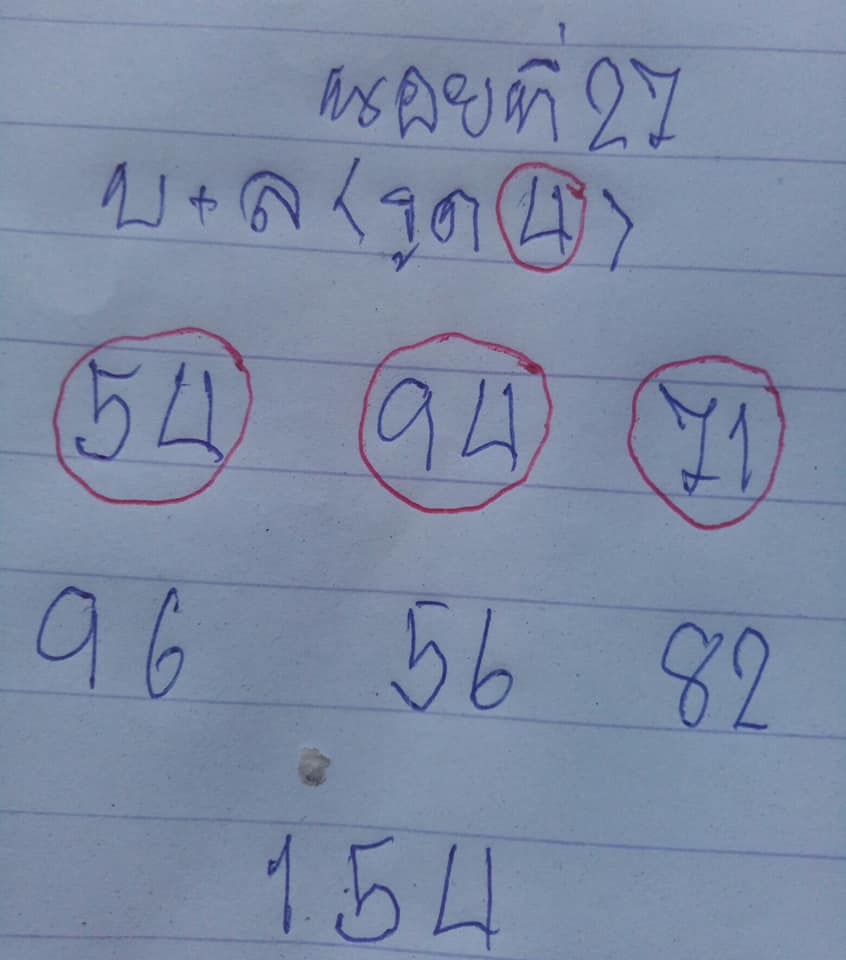 ที่ 27
บ + ล < รูด 4 >
54 94 71
96 56 82
154